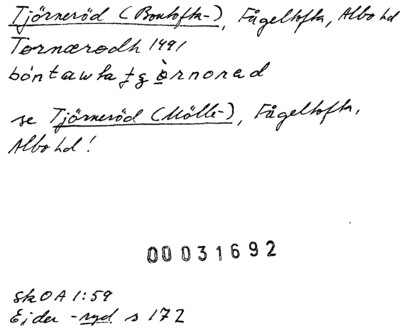 Tjörneröd (Bontofta-), Fågeltofta, Albo hd
Tornærødh 1491
bóntawta
se Tjörneröd (Mölle-), Fågeltofta,
Albo hd!
00031692
SkOA 1:59
Ejder -ryd s 172